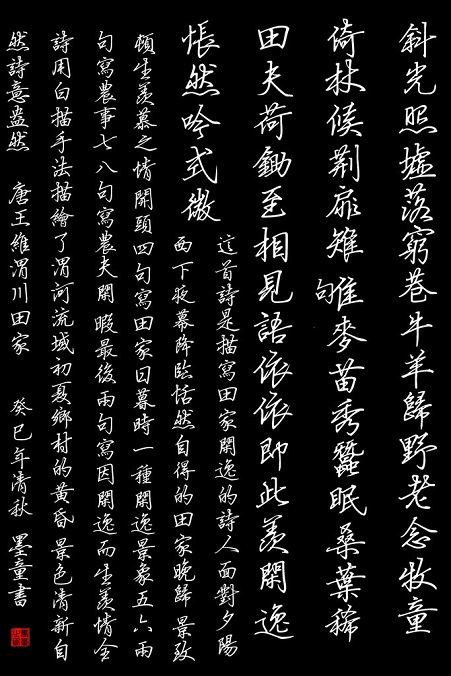 斜光照墟落窮巷牛羊歸野老念牧童
倚杖候荆扉雉雊麥苗秀蠶眠桑葉稀
田夫荷鋤至相見語依依即此羨閑逸
悵然吟式微
這首詩是描寫田家閑逸的詩人面對夕陽
西下夜幕降臨恬然自得的田家晚歸景致
頓生羨慕之情開頭四句寫田家日暮時一種閑逸景象五六兩
句寫農事七八句寫農夫閑暇最後兩句寫因閑逸而生羨情全
詩用白描手法描繪了渭河流域初夏鄉村的黃昏景色清新自
然詩意盎然 唐王維渭川田家 癸巳年清秋 墨童書